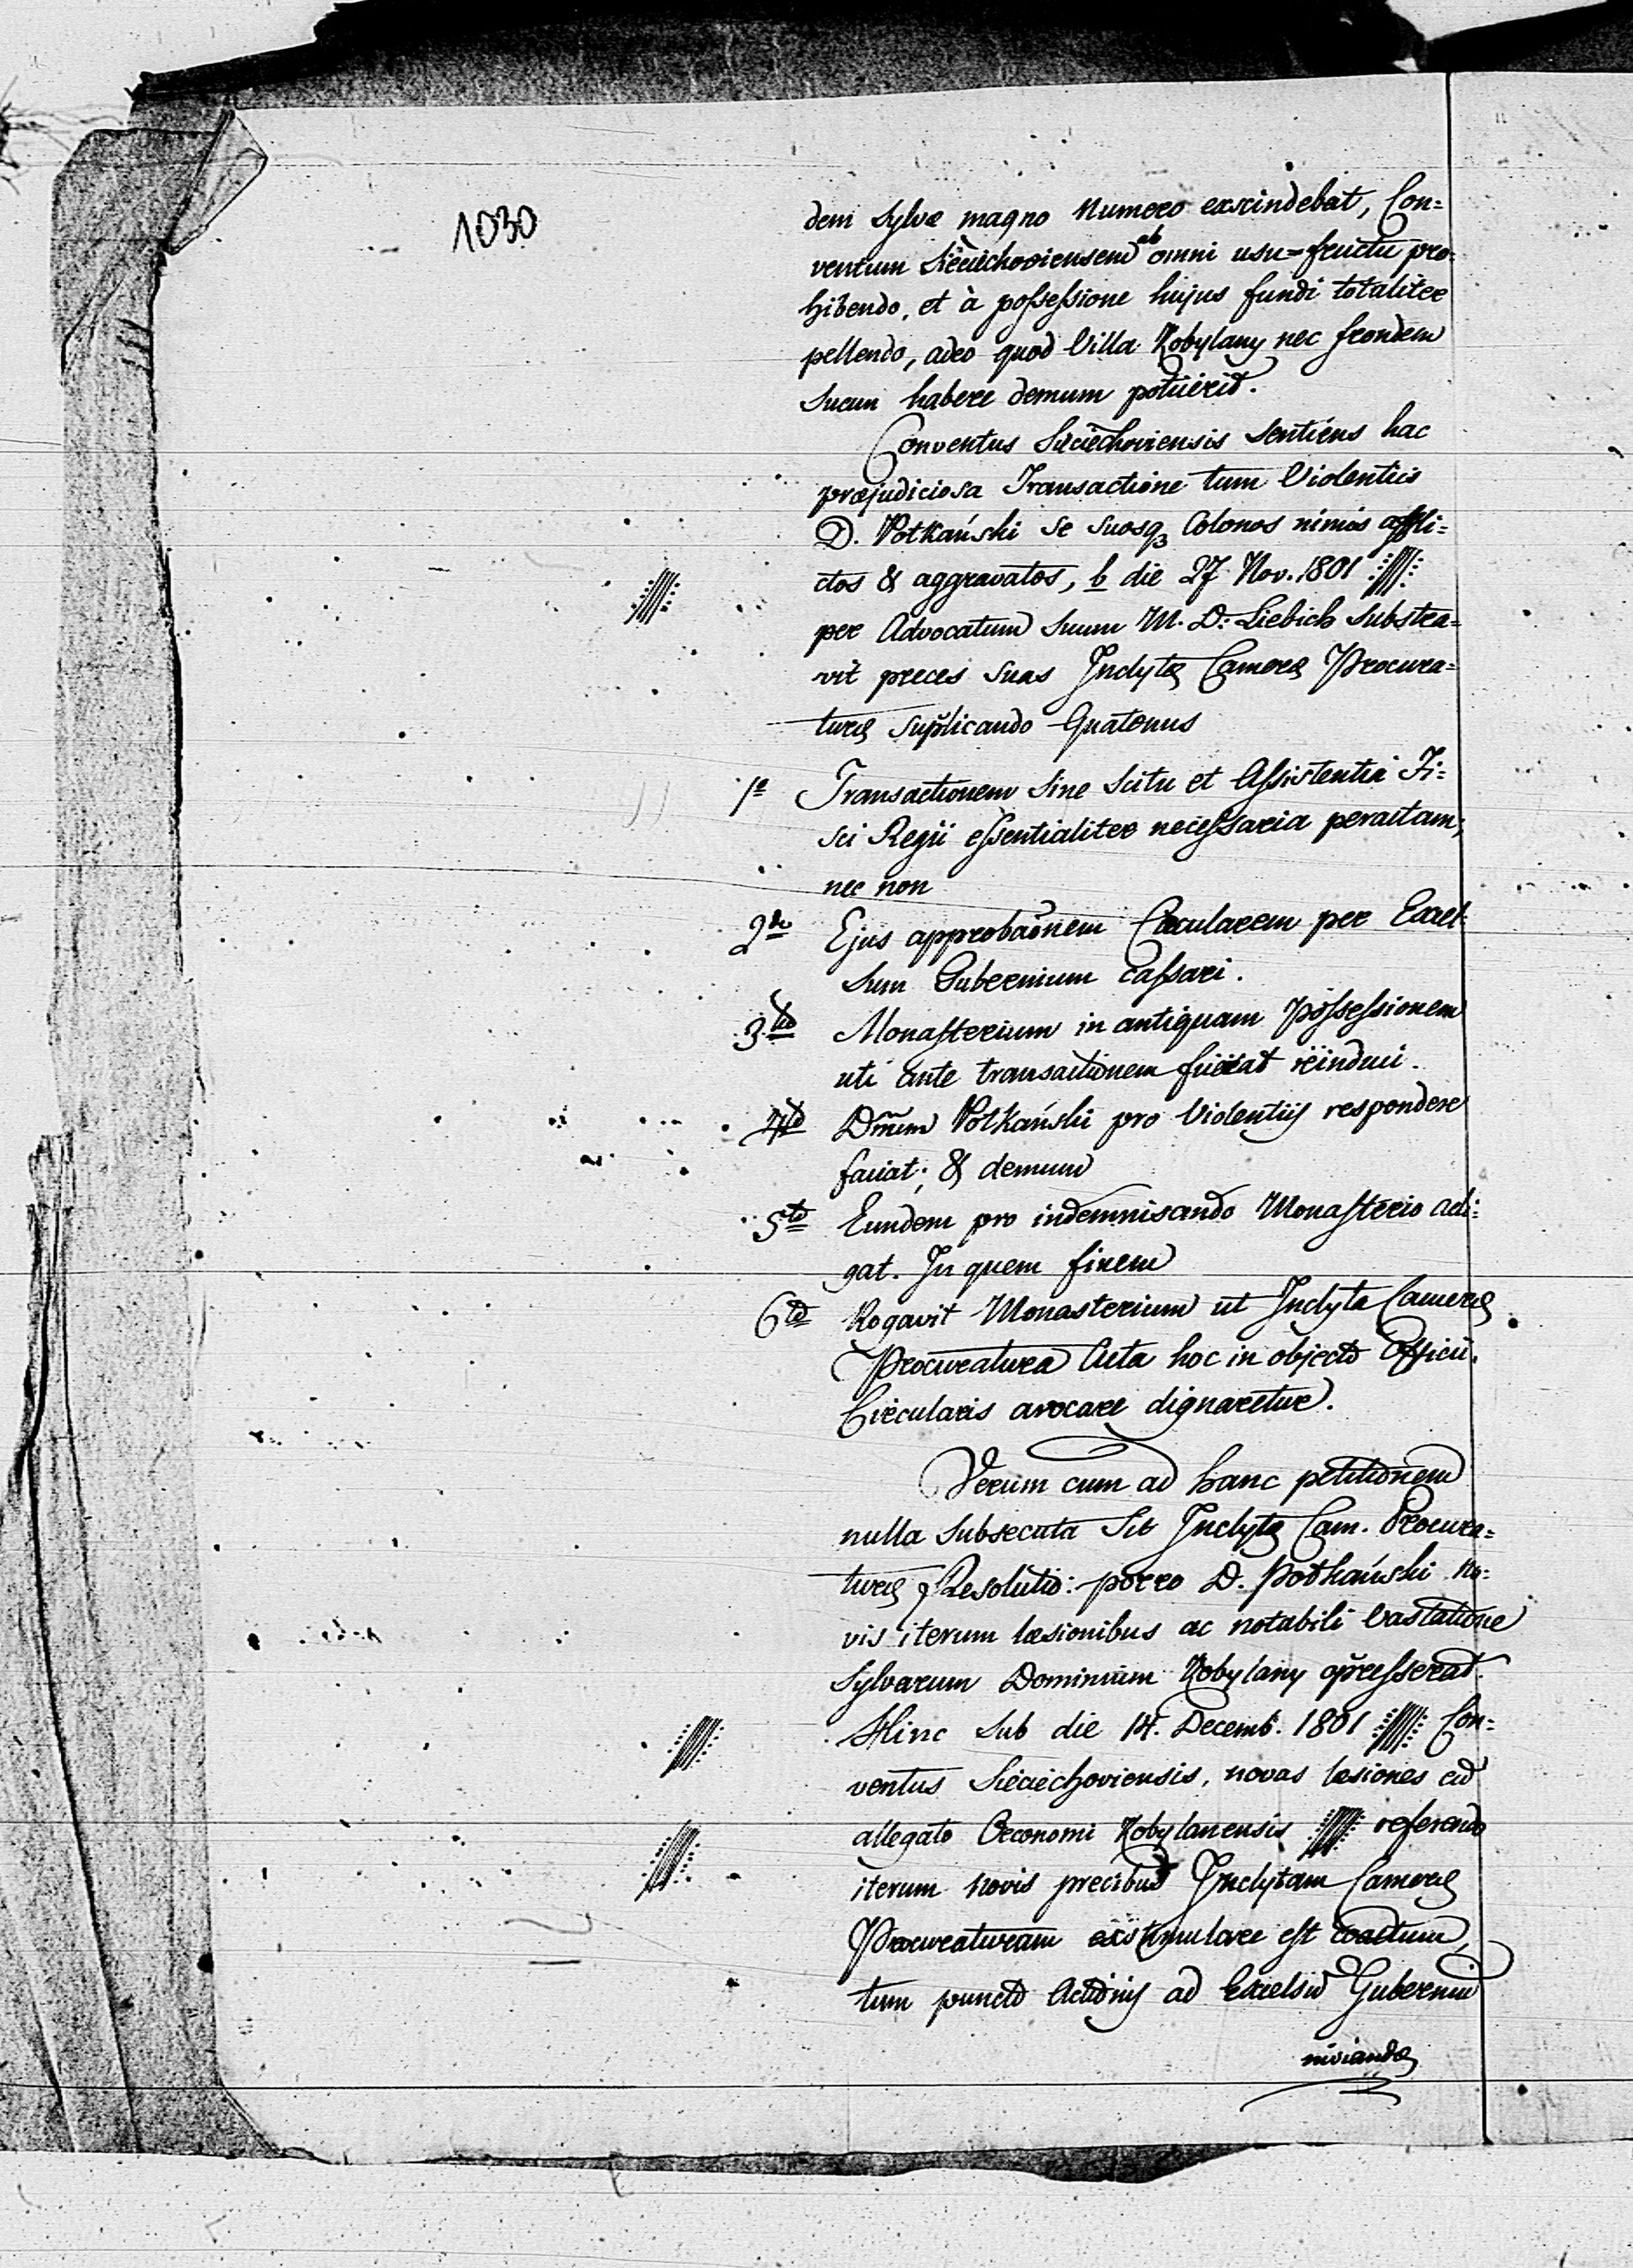 1030
dem Sylvæ magno Numero exscindebat, Con=
ventum Sieciechoviensem ab omni usu=fructu pro=
hibendo, et à possessione hujus fundi totaliter
pellendo, adeo quod Villa Kobylany nec frondem
Suam habere demum potuerit.
Conventus Sieciechoviensis Sentiens hac
præjudiciosa Transactione tum Violentiis
D. Potkański se suosq3 Colonos nimis affli=
ctos & aggravatos, die 27 Nov. 1801
per Advocatum Suum M. D: Liebich Substra=
vit preces suas Inclytæ Cameræ Procura=
turæ suplicando Quatenus
1º Transactionem Sine Scitu et Assistentia Fi=
sci Regii essentialiter necessaria peractam;
nec non
2do Ejus approbaõnem Circularem per Excel
sum Gubernium Cassari.
3tio Monasterium in antiquam Possessionem
uti ante transactionem fuerat reinduci.
4to Dnum Potkański pro Violentiis respondere
faciat; & demum
5to Eundem pro indemnisando Monasterio adi=
gat. In quem finem
6to Rogavit Monasterium ut Inclyta Cameræ
Procuratura Acta hoc in objecto Officii
Circularis avocare dignaretur.
Verum cum ad hanc petitionem
nulla Subsecuta Sit Inclytæ Cam. Procura=
turæ Resolutio: porro D. Potkański no=
vis iterum læsionibus ac notabili Vastatione
Sylvarum Dominium Kobylany opresserat.
Hinc Sub die 14. Decemb. 1801 Con=
ventus Sieciechoviensis, novas læsiones ex
allegato Oeconomi Kobylanensis referendo
iterum novis precibus Inclytam Cameræ
Procuraturam exstimulare est coactum,
tum puncto Actionis ad Excelsum Gubernium